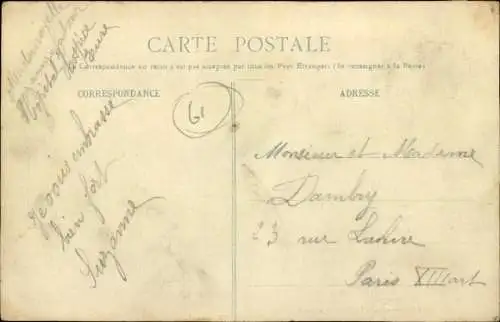 CARTE POSTALE
La Correspondance au recto n'est pas acceptée par tous les Pays Étrangers (Se renseigner à la Poste)
CORRESPONDANCE
ADRESSE
61
Mademoiselle
Hôpital
Eure
Je vous embrasse
bien fort
Suzanne
Monsieur et Madame
Dambry
23 rue Lahire
Paris XIII art